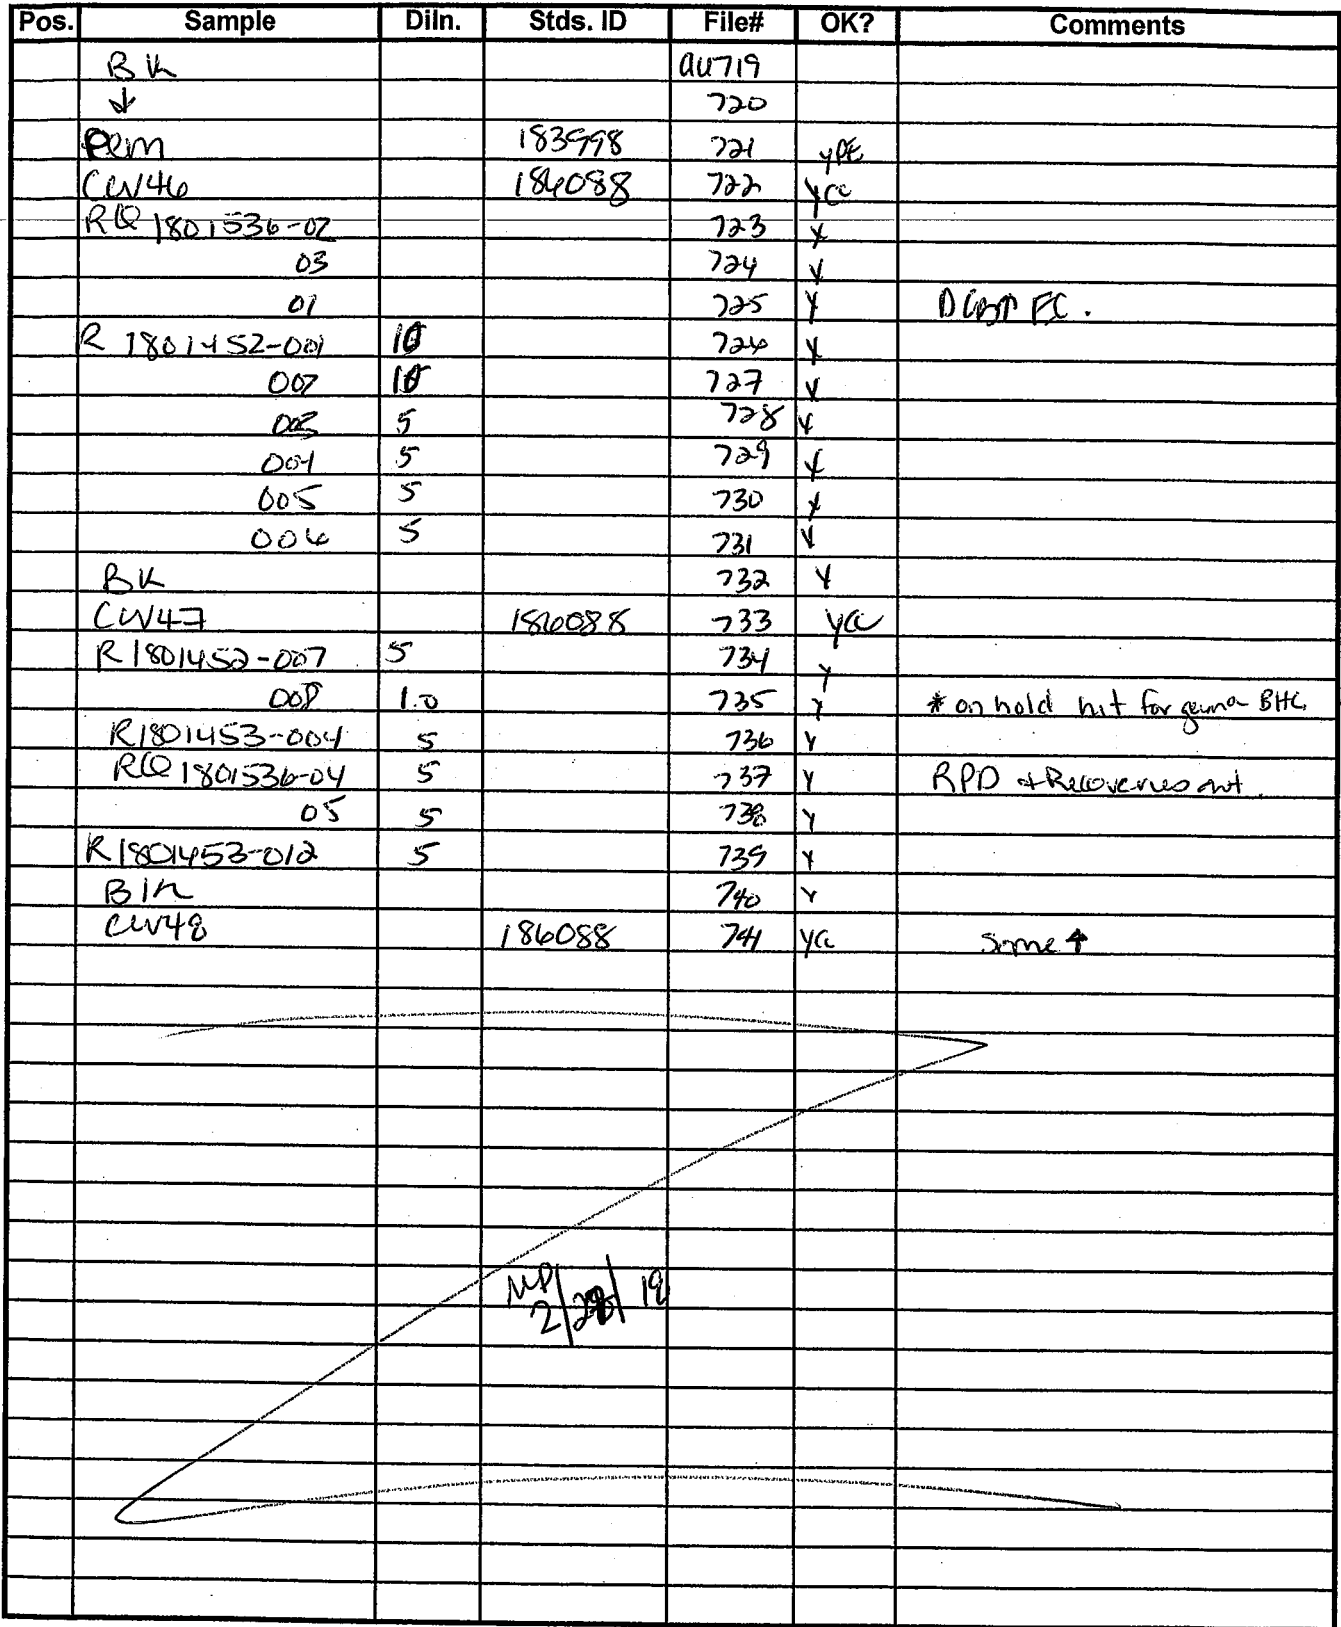 Pos. Sample Diln. Stds. ID File# OK? Comments
Bk au719
↓ 720
Pem 183998 721 yPE
CCV46 186088 722 YCC
RQ 1801536-02 723 Y
03 724 Y
01 725 Y FC.
R 1801452-001 10 726 Y
002 10 727 Y
003 5 728 Y
004 5 729 Y
005 5 730 Y
006 5 731 Y
Bk 732 Y
CCV47 186088 733 YCC
R1801452-007 5 734 Y
008 1.0 735 Y * on hold hit for gamma BHC
R1801453-004 5 736 Y
RQ1801536-04 5 737 Y RPD + Recoveries out.
05 5 738 Y
R1801453-012 5 739 Y
Bik 740 Y
CCV48 186088 741 YCC Some ↑
MP
2/28/18